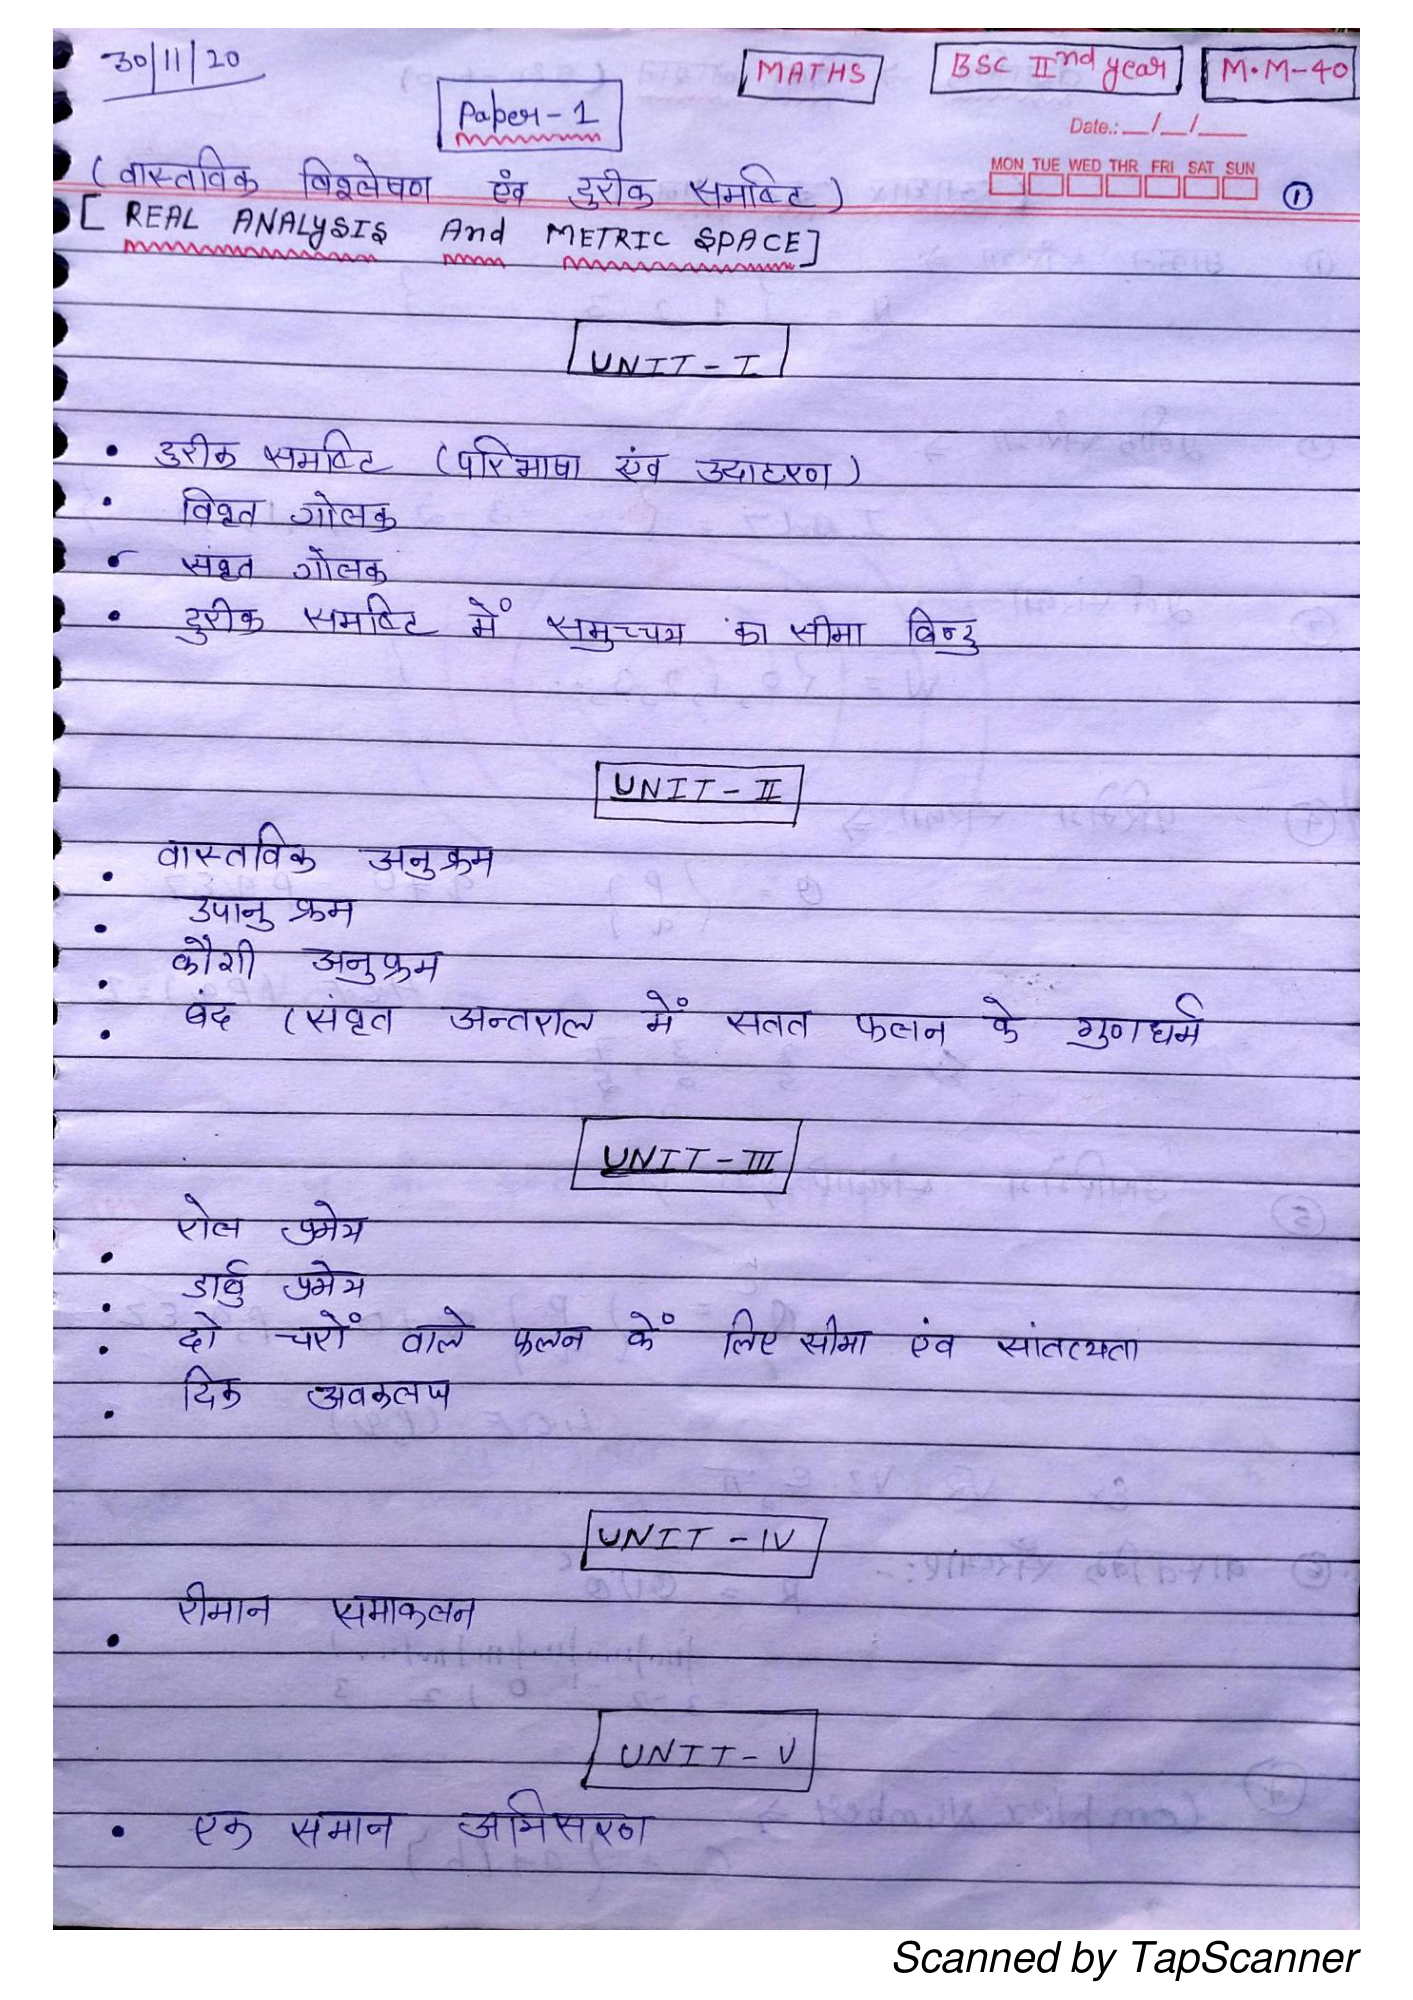 30/11/20
MATHS
BSC IInd year
M.M-40
Paper-1
Date.: __/__/___
MON TUE WED THR FRI SAT SUN
(वास्तविक विश्लेषण एंव दुरीक समष्टि)
1
[REAL ANALYSIS And METRIC SPACE]
UNIT-I
• दुरीक समष्टि (परिभाषा एंव उदाहरण)
• विवृत गोलक
• संवृत गोलक
• दुरीक समष्टि में समुच्चय का सीमा विन्दु
UNIT-II
• वास्तविक अनुक्रम
• उपानुक्रम
• कौशी अनुक्रम
• बंद (संवृत अन्तराल में सतत फलन के गुणधर्म
UNIT-III
• रोल प्रमेय
• डार्बु प्रमेय
• दो चरों वाले फलन कें लिए सीमा एंव सांतत्यता
• दिक अवकलज
UNIT-IV
• रीमान समाकलन
UNIT-V
• एक समान अभिसरण
Scanned by TapScanner